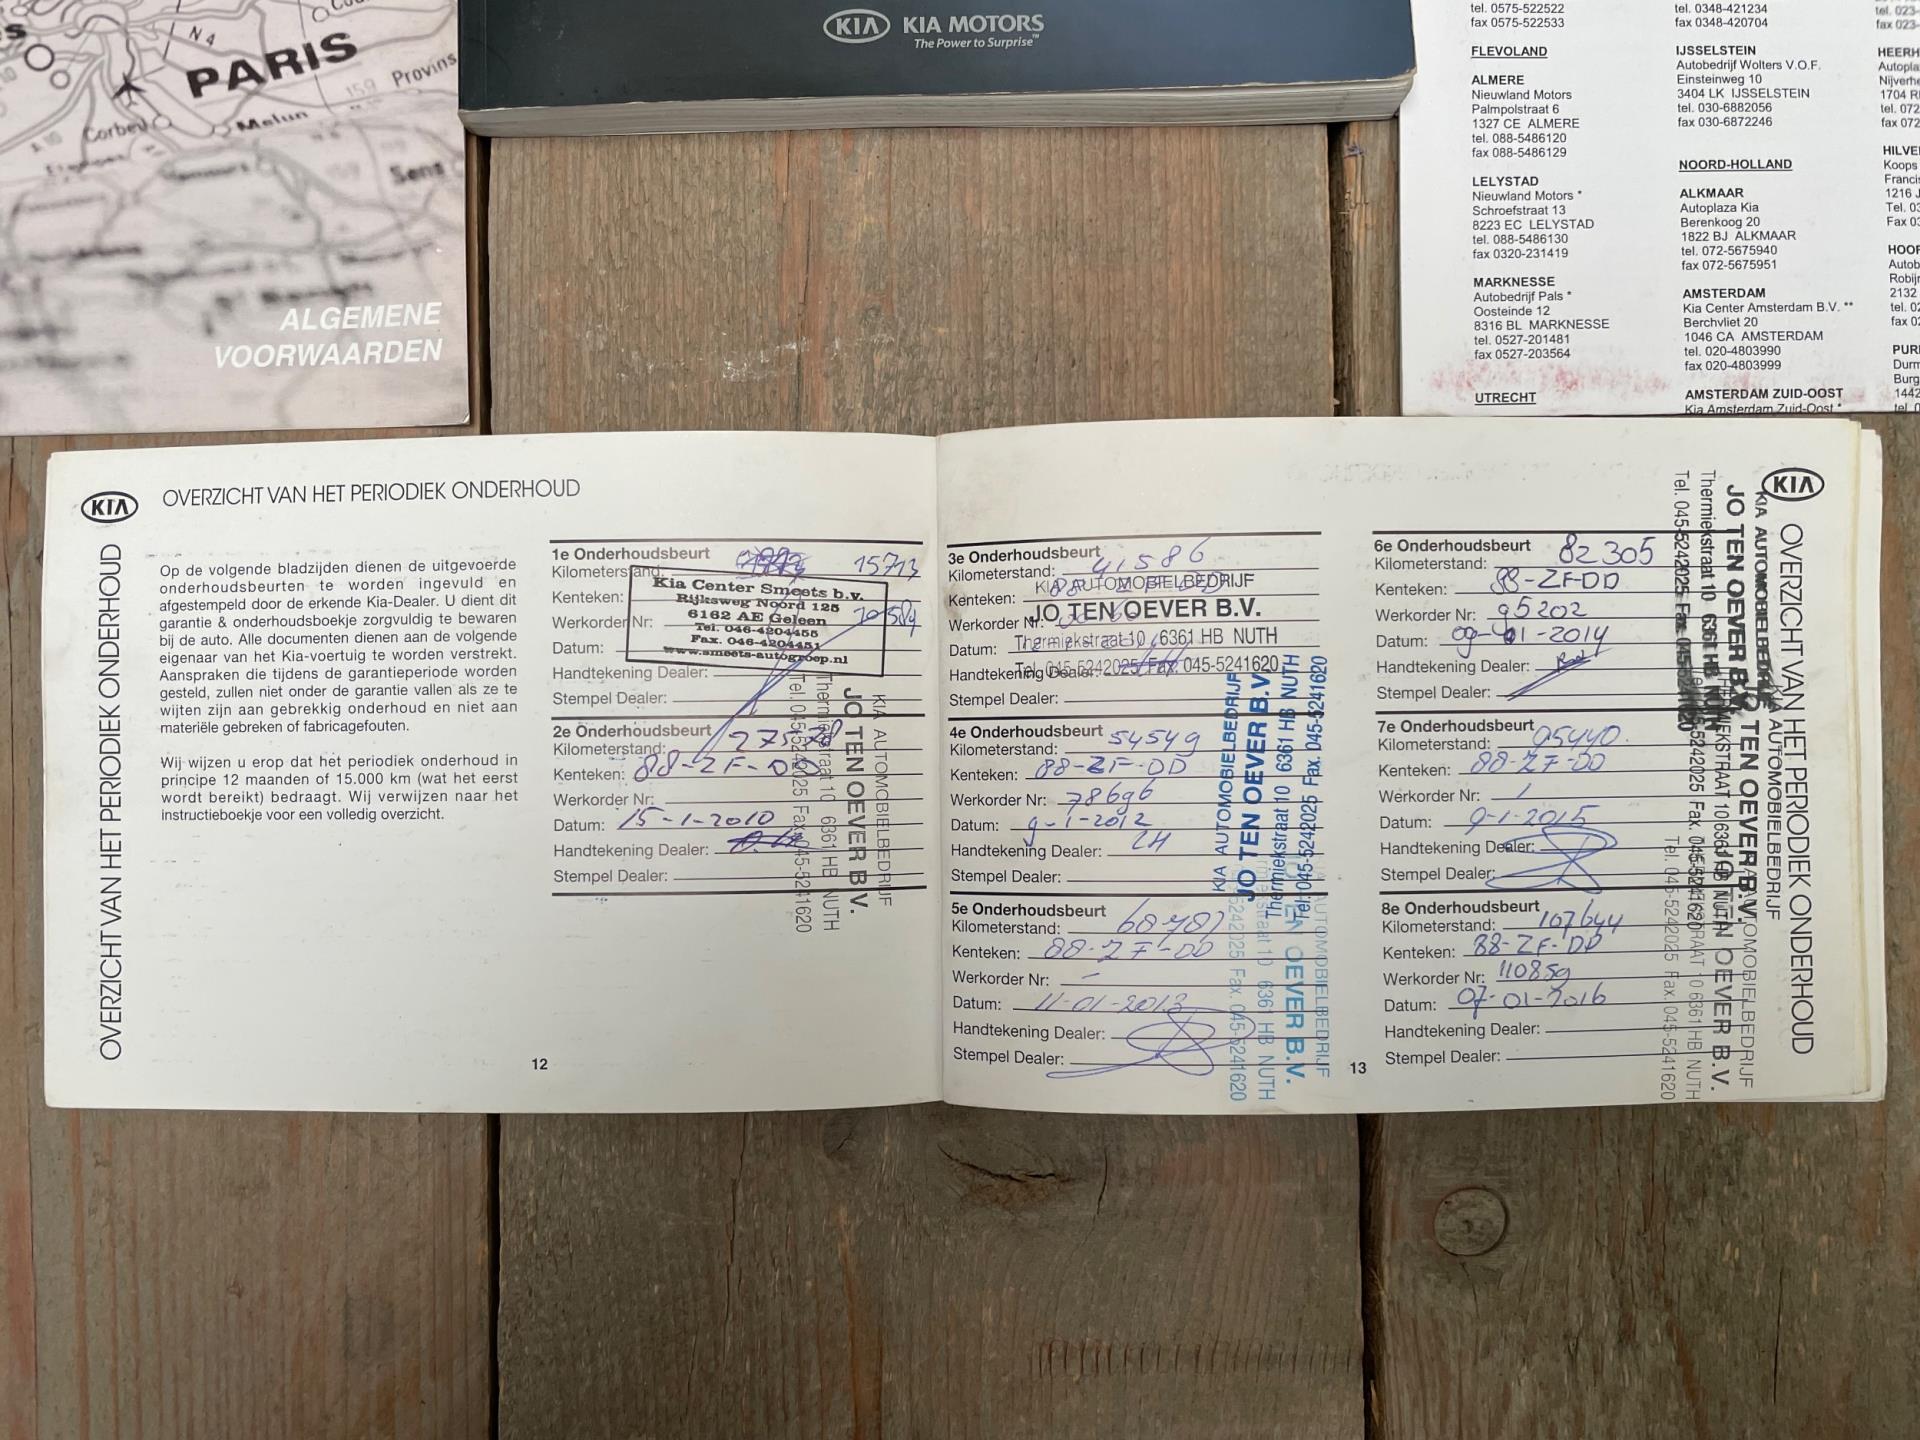 N4
PARIS
159
Provins
Corbeil
Melun
Sens
ALGEMENE
VOORWAARDEN
KIA KIA MOTORS
The Power to Surprise™
tel. 0575-522522
fax 0575-522533
FLEVOLAND
ALMERE
Nieuwland Motors
Palmpolstraat 6
1327 CE ALMERE
tel. 088-5486120
fax 088-5486129
LELYSTAD
Nieuwland Motors *
Schroefstraat 13
8223 EC LELYSTAD
tel. 088-5486130
fax 0320-231419
MARKNESSE
Autobedrijf Pals *
Oosteinde 12
8316 BL MARKNESSE
tel. 0527-201481
fax 0527-203564
UTRECHT
tel. 0348-421234
fax 0348-420704
IJSSELSTEIN
Autobedrijf Wolters V.O.F.
Einsteinweg 10
3404 LK IJSSELSTEIN
tel. 030-6882056
fax 030-6872246
NOORD-HOLLAND
ALKMAAR
Autoplaza Kia
Berenkoog 20
1822 BJ ALKMAAR
tel. 072-5675940
fax 072-5675951
AMSTERDAM
Kia Center Amsterdam B.V. **
Berchvliet 20
1046 CA AMSTERDAM
tel. 020-4803990
fax 020-4803999
AMSTERDAM ZUID-OOST
Kia Amsterdam Zuid-Oost *
KIA
OVERZICHT VAN HET PERIODIEK ONDERHOUD
OVERZICHT VAN HET PERIODIEK ONDERHOUD
Op de volgende bladzijden dienen de uitgevoerde
onderhoudsbeurten te worden ingevuld en
afgestempeld door de erkende Kia-Dealer. U dient dit
garantie & onderhoudsboekje zorgvuldig te bewaren
bij de auto. Alle documenten dienen aan de volgende
eigenaar van het Kia-voertuig te worden verstrekt.
Aanspraken die tijdens de garantieperiode worden
gesteld, zullen niet onder de garantie vallen als ze te
wijten zijn aan gebrekkig onderhoud en niet aan
materiële gebreken of fabricagefouten.
Wij wijzen u erop dat het periodiek onderhoud in
principe 12 maanden of 15.000 km (wat het eerst
wordt bereikt) bedraagt. Wij verwijzen naar het
instructieboekje voor een volledig overzicht.
1e Onderhoudsbeurt
Kilometerstand: 15713
Kenteken:
Werkorder Nr:
Datum:
Handtekening Dealer:
Stempel Dealer:
Kia Center Smeets b.v.
Rijksweg Noord 125
6162 AE Geleen
Tel. 046-4204455
Fax. 046-4204451
www.smeets-autogroep.nl
2e Onderhoudsbeurt
Kilometerstand:
Kenteken: 88-ZF-DD
Werkorder Nr:
Datum: 15-1-2010
Handtekening Dealer:
Stempel Dealer:
KIA AUTOMOBIELBEDRIJF
JO TEN OEVER B.V.
Thermiekstraat 10 6361 HB NUTH
Tel. 045-5242025 Fax. 045-5241620
12
3e Onderhoudsbeurt
Kilometerstand: 41586
Kenteken: 88-ZF-DD
Werkorder Nr:
Datum:
Handtekening Dealer:
Stempel Dealer:
KIA AUTOMOBIELBEDRIJF
JO TEN OEVER B.V.
Thermiekstraat 10 6361 HB NUTH
Tel. 045-5242025 Fax. 045-5241620
4e Onderhoudsbeurt
Kilometerstand: 54549
Kenteken: 88-ZF-DD
Werkorder Nr: 78696
Datum: 9-1-2012
Handtekening Dealer:
Stempel Dealer:
KIA AUTOMOBIELBEDRIJF
JO TEN OEVER B.V.
Thermiekstraat 10 6361 HB NUTH
Tel. 045-5242025 Fax. 045-5241620
5e Onderhoudsbeurt
Kilometerstand:
Kenteken: 88-ZF-DD
Werkorder Nr: -
Datum: 11-01-2013
Handtekening Dealer:
Stempel Dealer:
13
6e Onderhoudsbeurt
Kilometerstand: 82305
Kenteken: 88-ZF-DD
Werkorder Nr: 95202
Datum: 09-01-2014
Handtekening Dealer:
Stempel Dealer:
7e Onderhoudsbeurt
Kilometerstand: 95440
Kenteken: 88-ZF-DD
Werkorder Nr: /
Datum: 9-1-2015
Handtekening Dealer:
Stempel Dealer:
8e Onderhoudsbeurt
Kilometerstand: 107644
Kenteken: 88-ZF-DD
Werkorder Nr: 110859
Datum: 07-01-2016
Handtekening Dealer:
Stempel Dealer:
KIA AUTOMOBIELBEDRIJF
JO TEN OEVER B.V.
Thermiekstraat 10 6361 HB NUTH
Tel. 045-5242025 Fax. 045-5241620
KIA
OVERZICHT VAN HET PERIODIEK ONDERHOUD